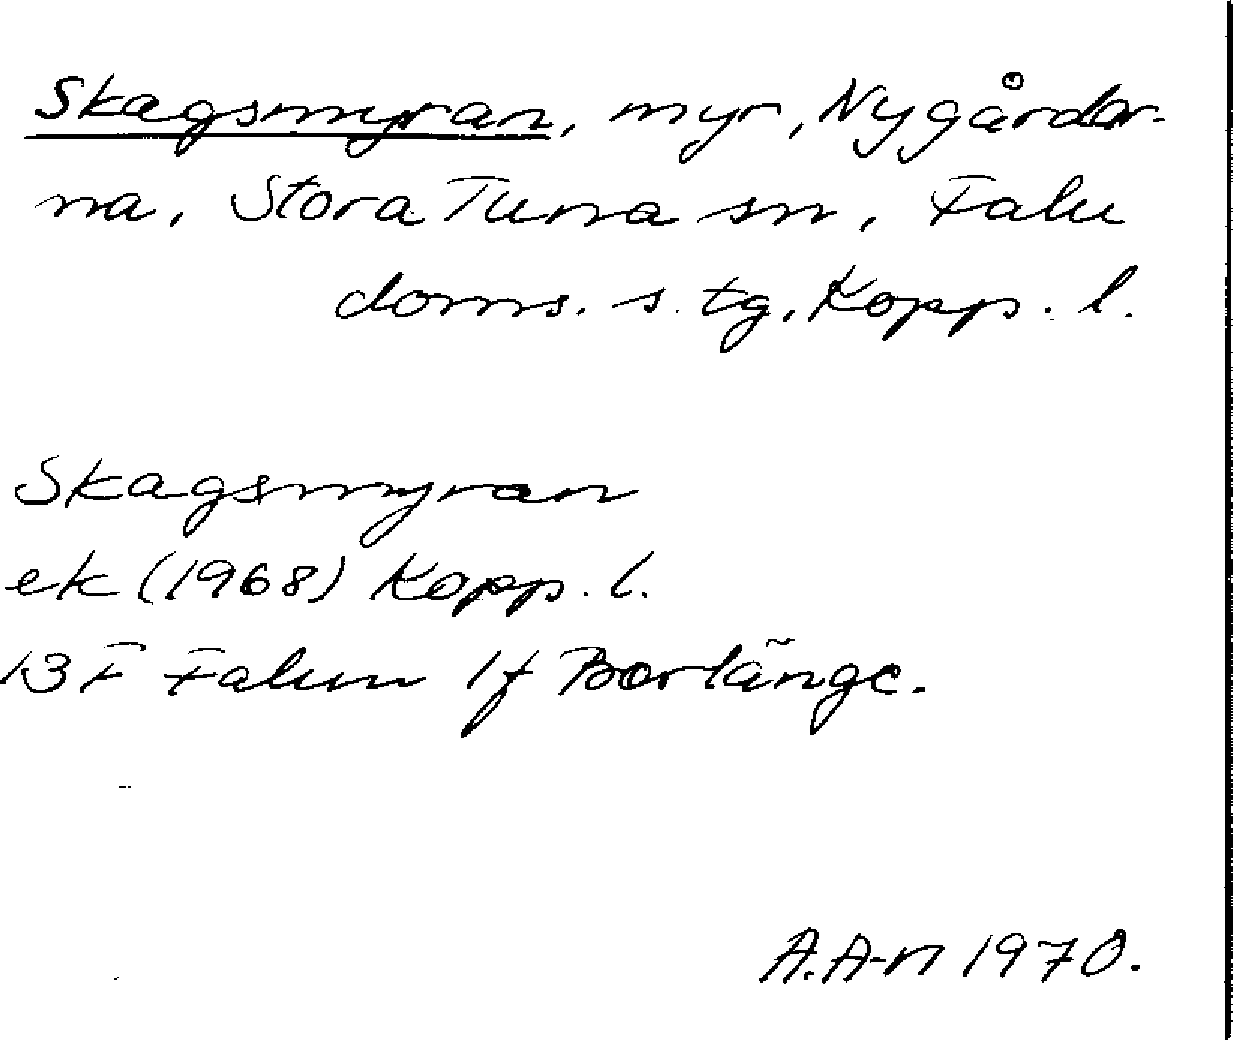 Skagsmyran, myr, Nygårdar-
na, Stora Tuna sn, Falu
doms. s. tg, Kopp. l.
Skagsmyran
ek (1968) Kopp. l.
13F Falun 1f Borlänge.
A.A-n 1970.